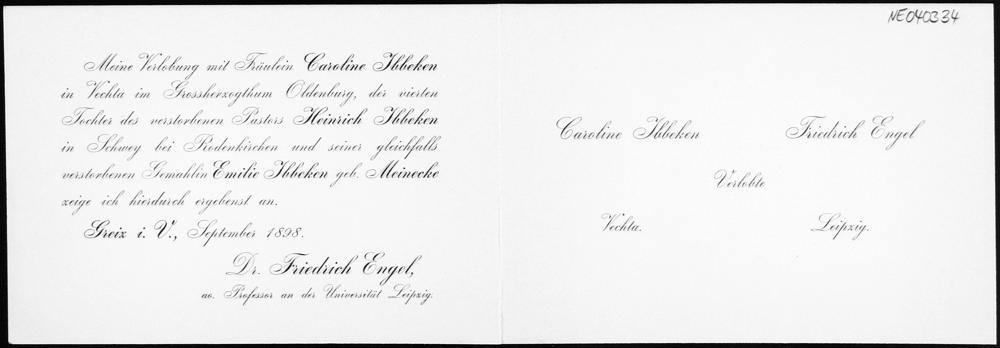 Meine Verlobung mit Fräulein Caroline Ibbeken
in Vechta im Grossherzogthum Oldenburg, der vierten
Tochter des verstorbenen Pastors Heinrich Ibbeken
in Schwey bei Rodenkirchen und seiner gleichfalls
verstorbenen Gemahlin Emilie Ibbeken geb. Meinecke
zeige ich hierdurch ergebenst an.
Greiz i. V., September 1898.
Dr. Friedrich Engel,
ao. Professor an der Universität Leipzig.
NE040334
Caroline Ibbeken Friedrich Engel
Verlobte
Vechta. Leipzig.